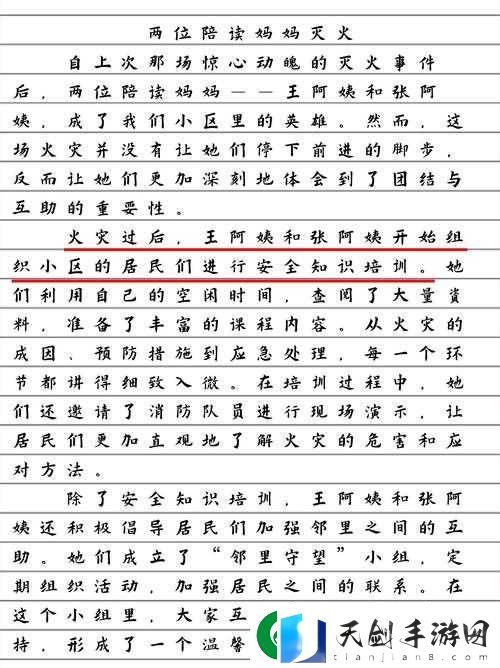 两位陪读妈妈灭火
自上次那场惊心动魄的灭火事件
后，两位陪读妈妈——王阿姨和张阿
姨，成了我们小区里的英雄。然而，这
场火灾并没有让她们停下前进的脚步，
反而让她们更加深刻地体会到了团结与
互助的重要性。
火灾过后，王阿姨和张阿姨开始组
织小区的居民们进行安全知识培训。她
们利用自己的空闲时间，查阅了大量资
料，准备了丰富的课程内容。从火灾的
成因、预防措施到应急处理，每一个环
节都讲得细致入微。在培训过程中，她
们还邀请了消防队员进行现场演示，让
居民们更加直观地了解火灾的危害和应
对方法。
除了安全知识培训，王阿姨和张阿
姨还积极倡导居民们加强邻里之间的互
助。她们成立了“邻里守望”小组，定
期组织活动，加强居民之间的联系。在
这个小组里，大家互
持，形成了一个温馨
天剑手游网
tianjian8.com